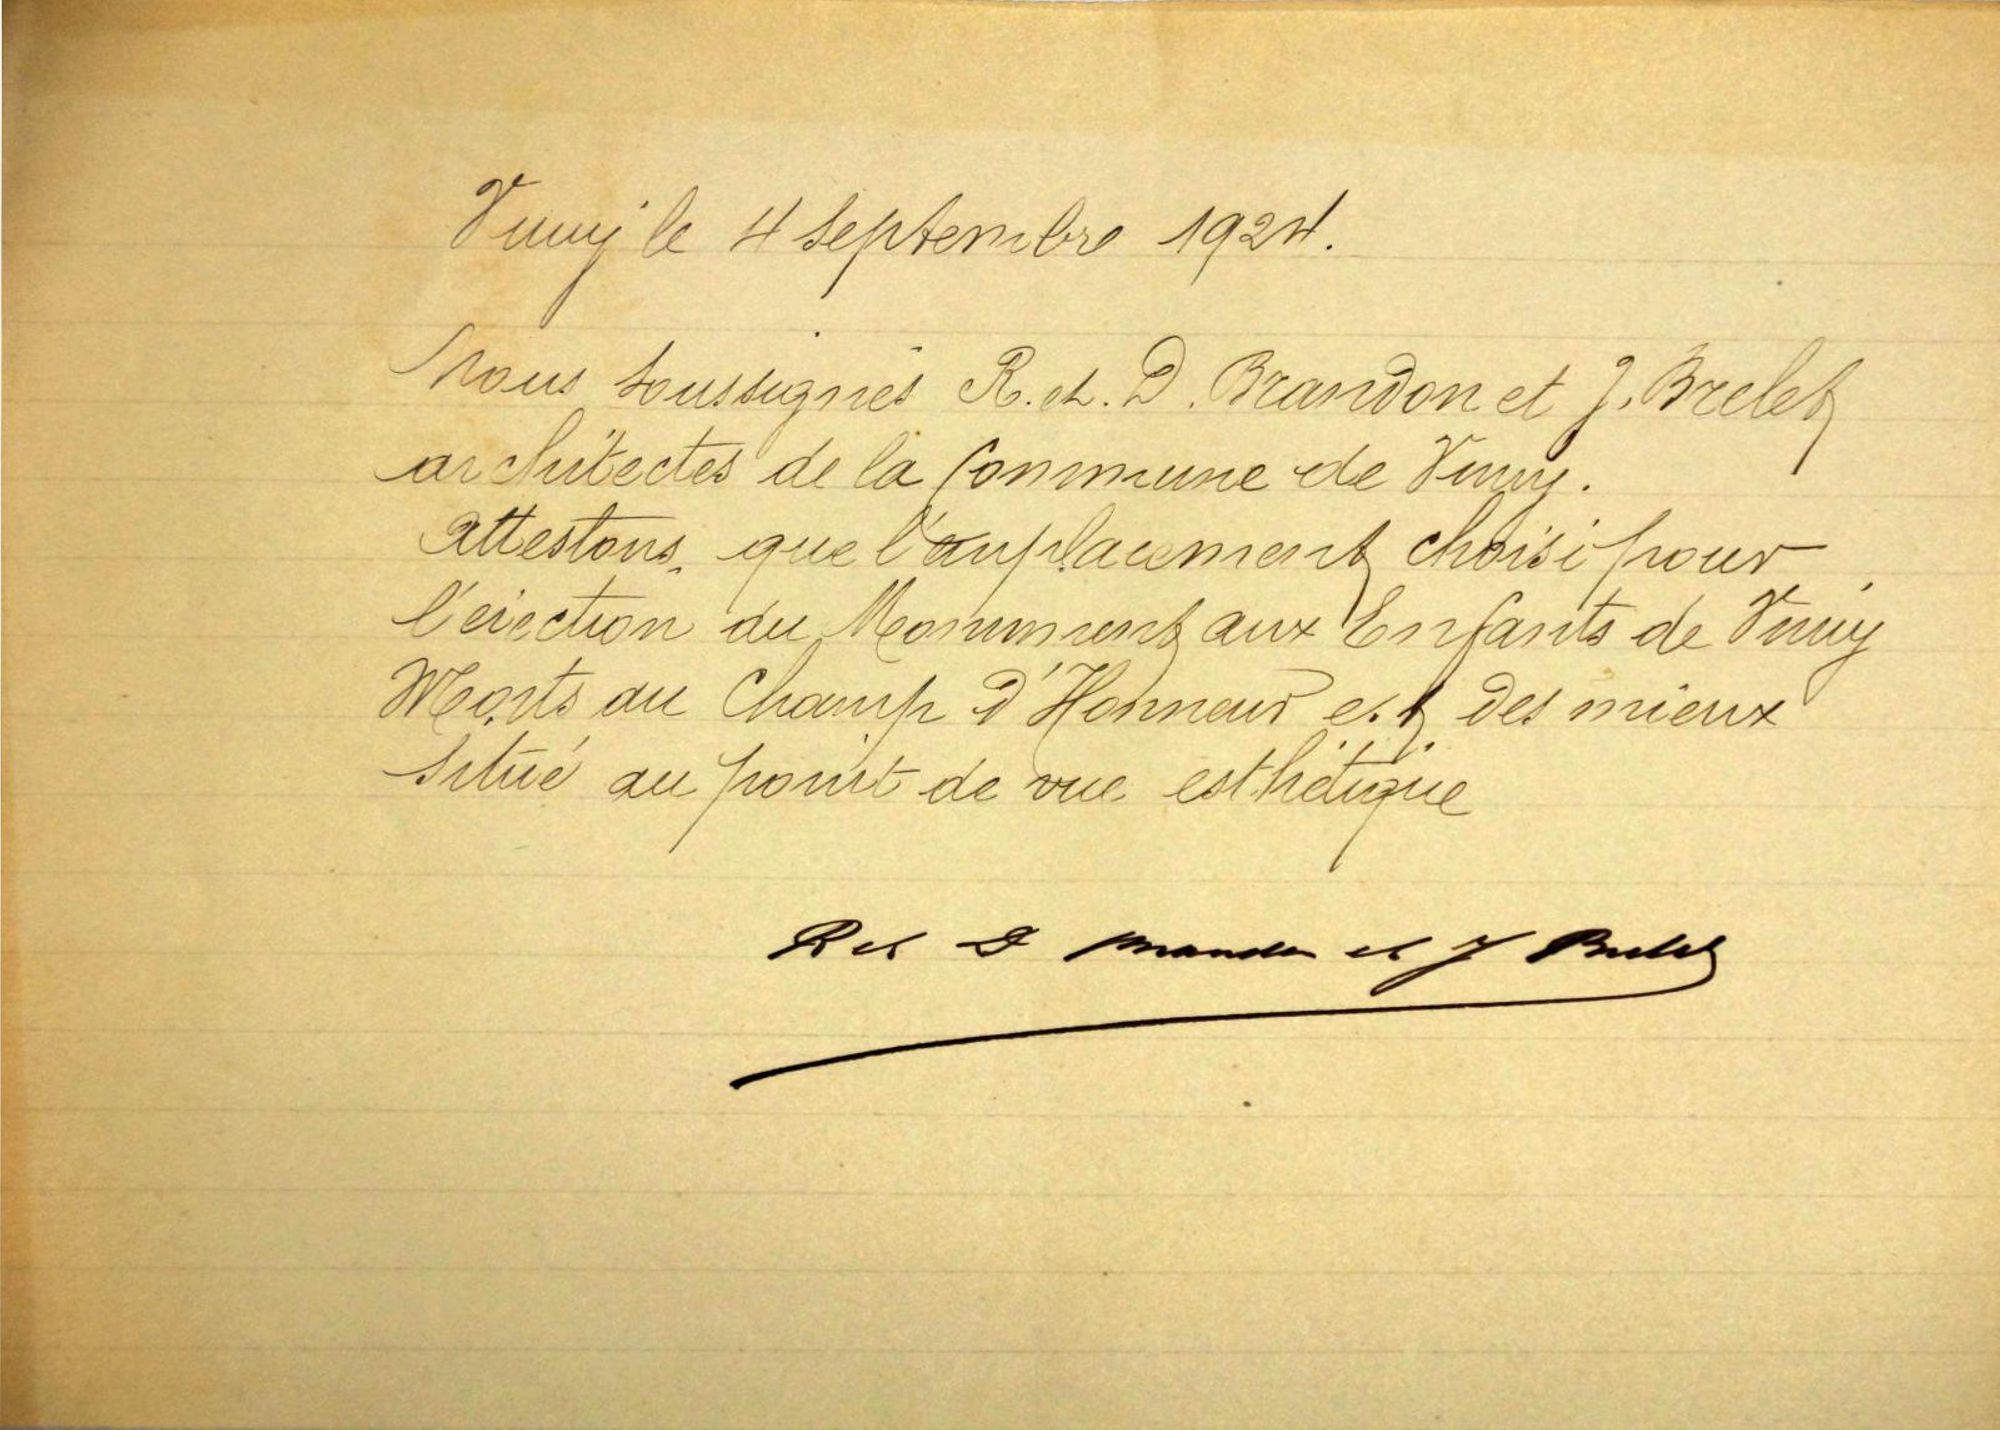 Vimy le 4 Septembre 1924.
Nous soussignés R. et. D. Brandon et J. Brelet
architectes de la Commune de Vimy.
Attestons, que l'emplacement choisi pour
l'érection du Monument aux Enfants de Vimy
Morts au Champ D'Honneur est des mieux
situé au point de vue esthétique
R et D Brandon et J Brelet